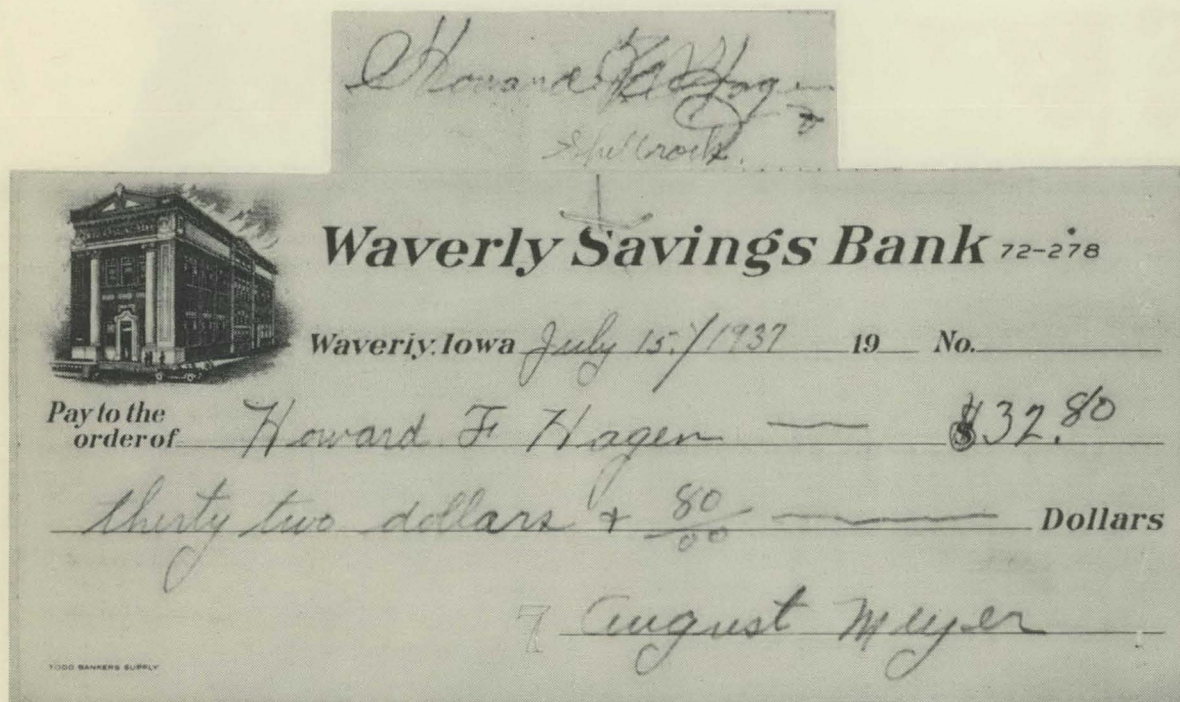 Howard F Hagen
Shellrock.
Waverly Savings Bank 72-278
Waverly, Iowa July 15./1937 19 No.
Pay to the order of Howard F Hagen $32.80
thirty two dollars + 80/00 Dollars
7 August Meyer
TODD BANKERS SUPPLY